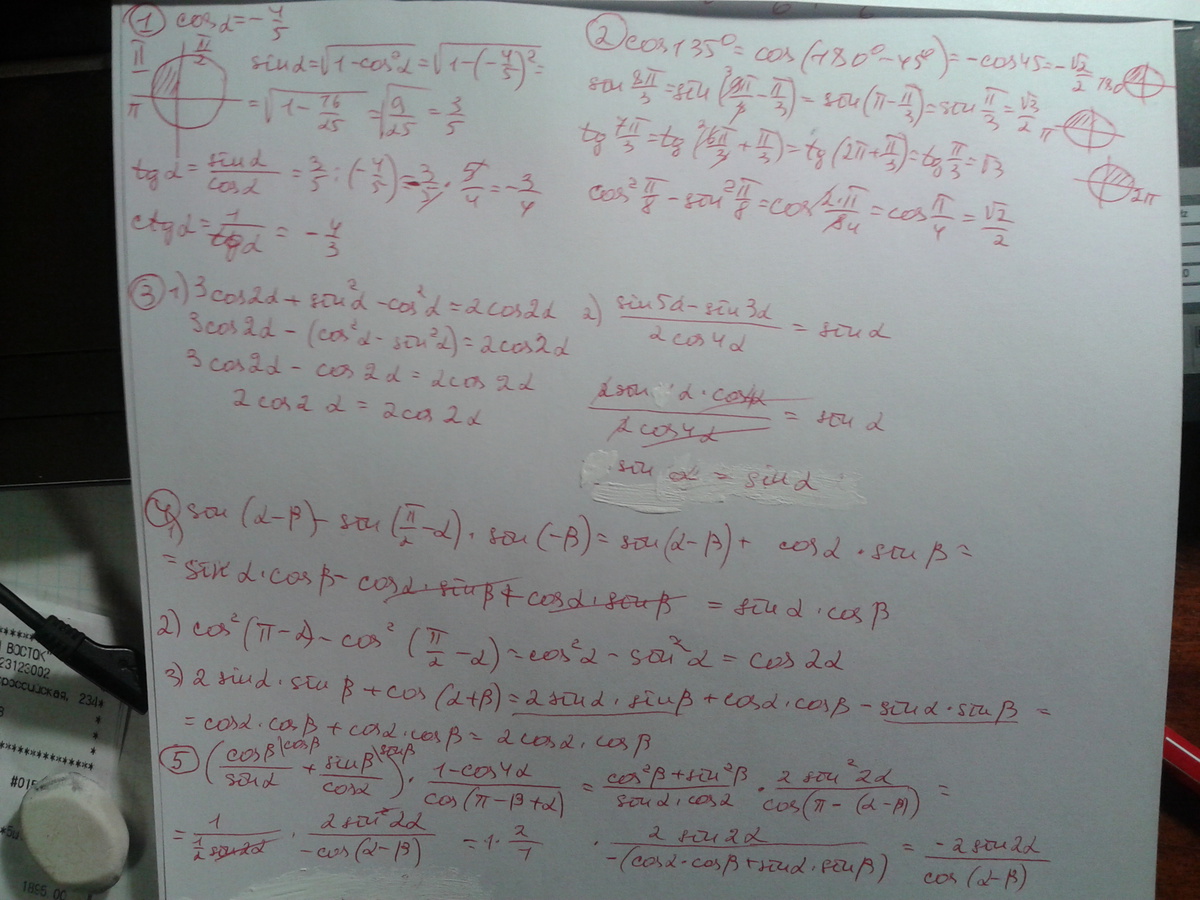 ① cosα = -4/5
π/2
π
sinα = √(1-cos²α) = √(1-(-4/5)²) =
= √(1 - 16/25) = √(9/25) = 3/5
tgα = sinα/cosα = 3/5 : (-4/5) = -3/5 · 5/4 = -3/4
ctgα = 1/tgα = -4/3
② cos135° = cos(180° - 45°) = -cos45 = -√2/2
sin 8π/3 = sin(9π/3 - π/3) = sin(π - π/3) = sin π/3 = √3/2
π
tg 7π/3 = tg(6π/3 + π/3) = tg(2π + π/3) = tg π/3 = √3
2π
cos² π/8 - sin² π/8 = cos 2·π/8 = cos π/4 = √2/2
③ 1) 3cos2α + sin²α - cos²α = 2cos2α
3cos2α - (cos²α - sin²α) = 2cos2α
3cos2α - cos2α = 2cos2α
2cos2α = 2cos2α
2) (sin5α - sin3α)/(2cos4α) = sinα
(2sinα · cos4α)/(2cos4α) = sinα
sinα = sinα
④ 1) sin(α-β) - sin(π/2 - α) · sin(-β) = sin(α-β) + cosα · sinβ =
= sinα·cosβ - cosα·sinβ + cosα·sinβ = sinα·cosβ
2) cos²(π-α) - cos²(π/2 - α) = cos²α - sin²α = cos2α
3) 2sinα·sinβ + cos(α+β) = 2sinα·sinβ + cosα·cosβ - sinα·sinβ =
= cosα·cosβ + cosα·cosβ = 2cosα·cosβ
⑤ (cosβ/sinα \cosβ + sinβ/cosα \sinβ) · (1-cos4α)/(cos(π-β+α)) = (cos²β + sin²β)/(sinα·cosα) · (2sin²2α)/(cos(π-(α-β)) =
= 1/(1/2 sin2α) · (2sin²2α)/(-cos(α-β)) = 1·2/1 · (2sin2α)/(-(cosα·cosβ + sinα·sinβ)) = (-2sin2α)/(cos(α-β))
ВОСТОК"
23123002
российская, 234*
*
*
*
#015
1895.00